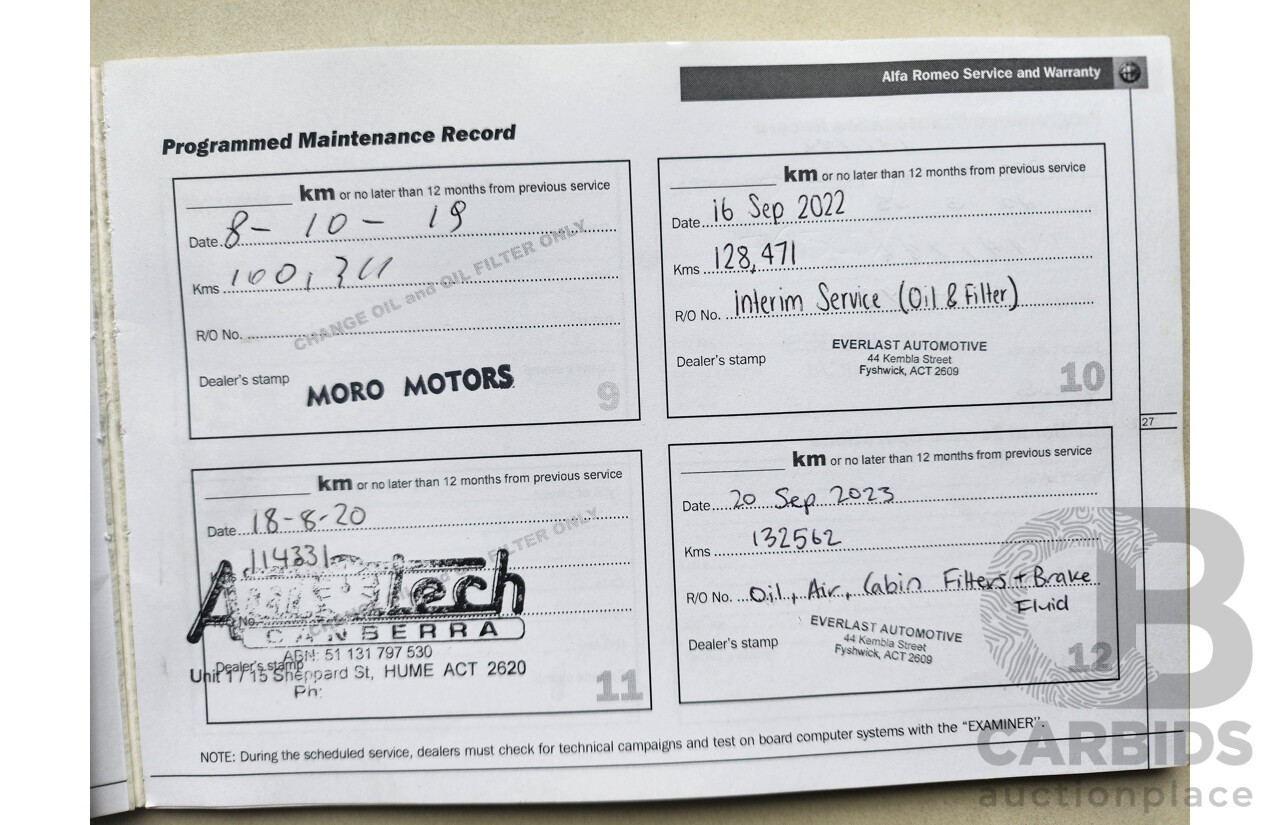 Alfa Romeo Service and Warranty
Programmed Maintenance Record
km or no later than 12 months from previous service
Date 8 - 10 - 19
Kms 100,311
CHANGE OIL and OIL FILTER ONLY
R/O No.
Dealer's stamp
MORO MOTORS
9
km or no later than 12 months from previous service
Date 16 Sep 2022
Kms 128,471
R/O No. Interim Service (Oil & Filter)
Dealer's stamp
EVERLAST AUTOMOTIVE
44 Kembla Street
Fyshwick, ACT 2609
10
27
km or no later than 12 months from previous service
Date 18-8-20
114331
FILTER ONLY
tech
No.
CANBERRA
ABN: 51 131 797 530
Dealer's stamp
Unit 1 / 15 Sheppard St, HUME ACT 2620
Ph:
11
km or no later than 12 months from previous service
Date 20 Sep 2023
Kms 132562
R/O No. Oil, Air, Cabin Filters + Brake
Fluid
Dealer's stamp
EVERLAST AUTOMOTIVE
44 Kembla Street
Fyshwick, ACT 2609
12
NOTE: During the scheduled service, dealers must check for technical campaigns and test on board computer systems with the “EXAMINER”.
CARBIDS
auctionplace